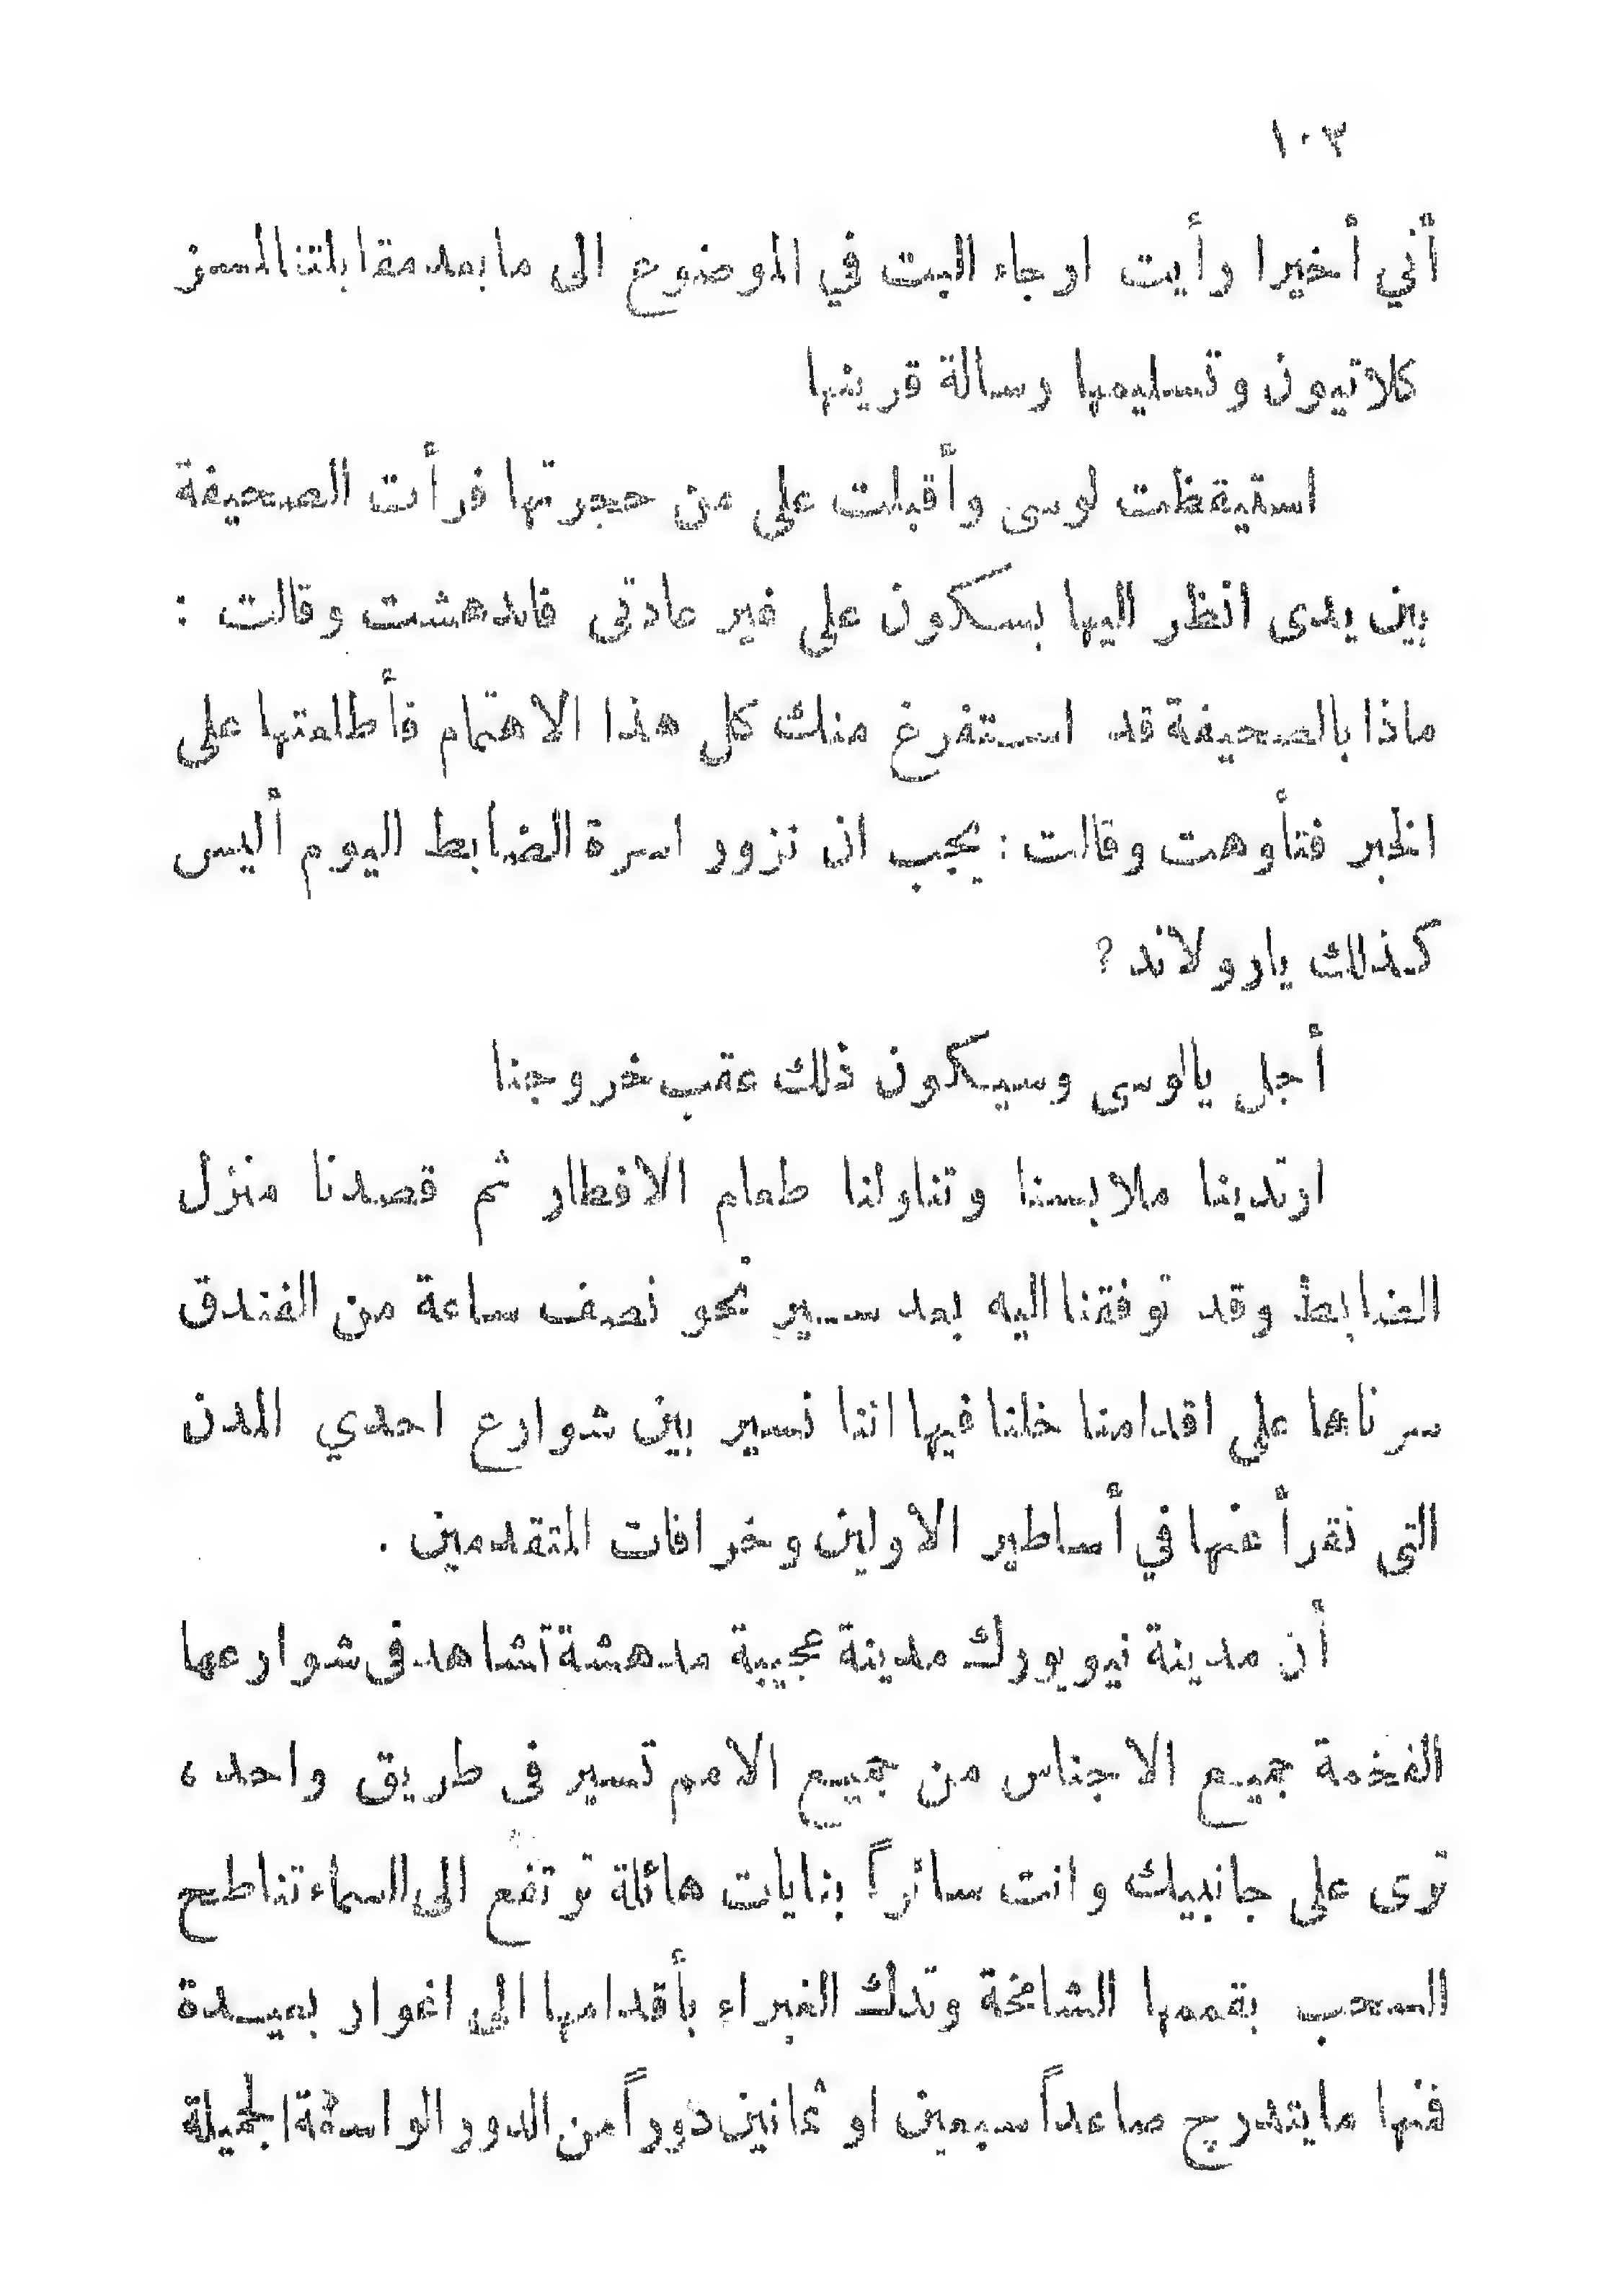 ١٠٣
أني أخيرا رأيت ارجاء البت في الموضوع الى ما بعد مقابلتنا لمسز
كلاتيون وتسليمها رسالة قرينها
استيقظت لوسى وأقبلت على من حجرتها فرأت الصحيفة
بين يدى انظر اليها بسكون على غير عادتى فاندهشت وقالت :
ماذا بالصحيفة قد استفرغ منك كل هذا الاهتمام فأطلعتها على
الخبر فتأوهت وقالت : يجب ان نزور اسرة الضابط اليوم أليس
كذلك يارولاند ?
أجل يالوسى وسيكون ذلك عقب خروجنا
ارتدينا ملابسنا وتناولنا طعام الافطار ثم قصدنا منزل
الضابط وقد توفقنا اليه بعد سير نحو نصف ساعة من الفندق
سرناها على اقدامنا خلنا فيها اننا نسير بين شوارع احدي المدن
التى نقرأ عنها في أساطير الاولين وخرافات المتقدمين .
أن مدينة نيويورك مدينة عجيبة مدهشة تشاهد فى شوارعها
الفخمة جميع الاجناس من جميع الامم تسير فى طريق واحد ،
ترى على جانبيك وانت سائراً بنايات هائلة ترتفع الى السماء تناطح
السحب بقممها الشامخة وتدك الغبراء بأقدامها الى اغوار بعيدة
فمنها ما يتدرج صاعداً سبعين او ثمانين دوراً من الدور الواسعة الجميلة